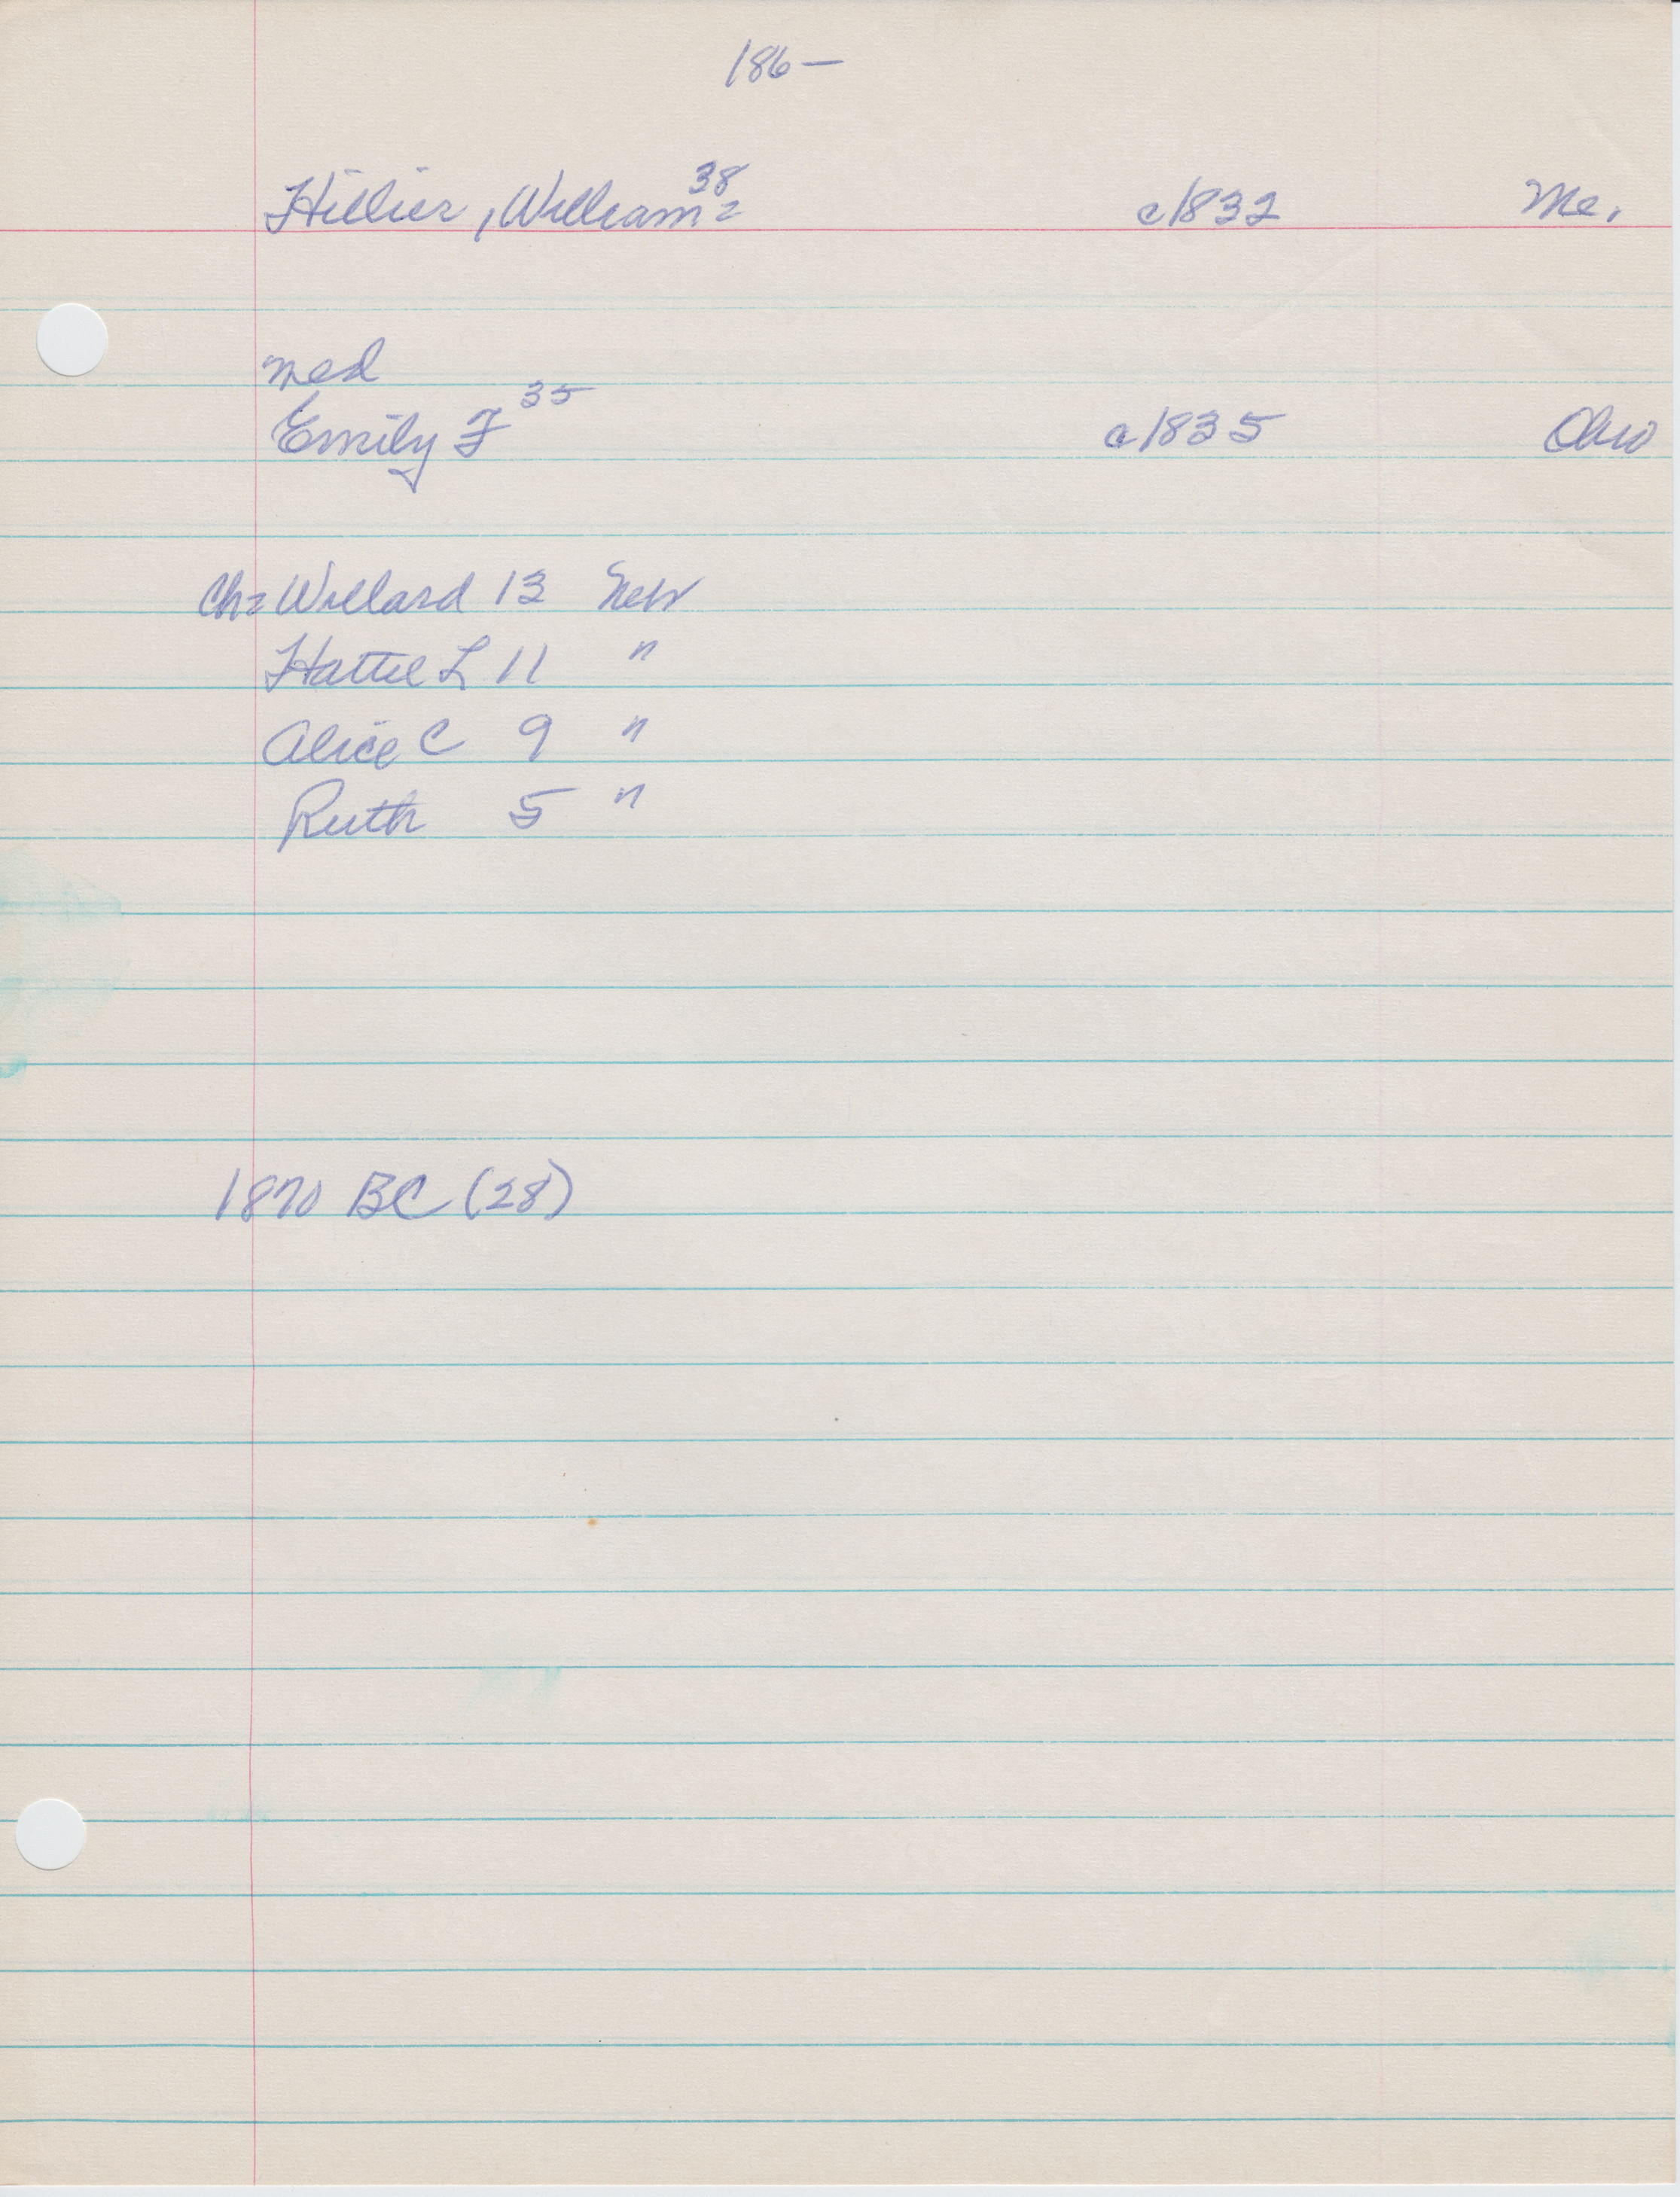 186—
Hillier, William 38 = c1832 Me.
med
Emily F 35 c1835 Ohio
Ch = Willard 13
Hattie L 11 "
Alice C 9 "
Ruth 5 "
1870 BC (28)